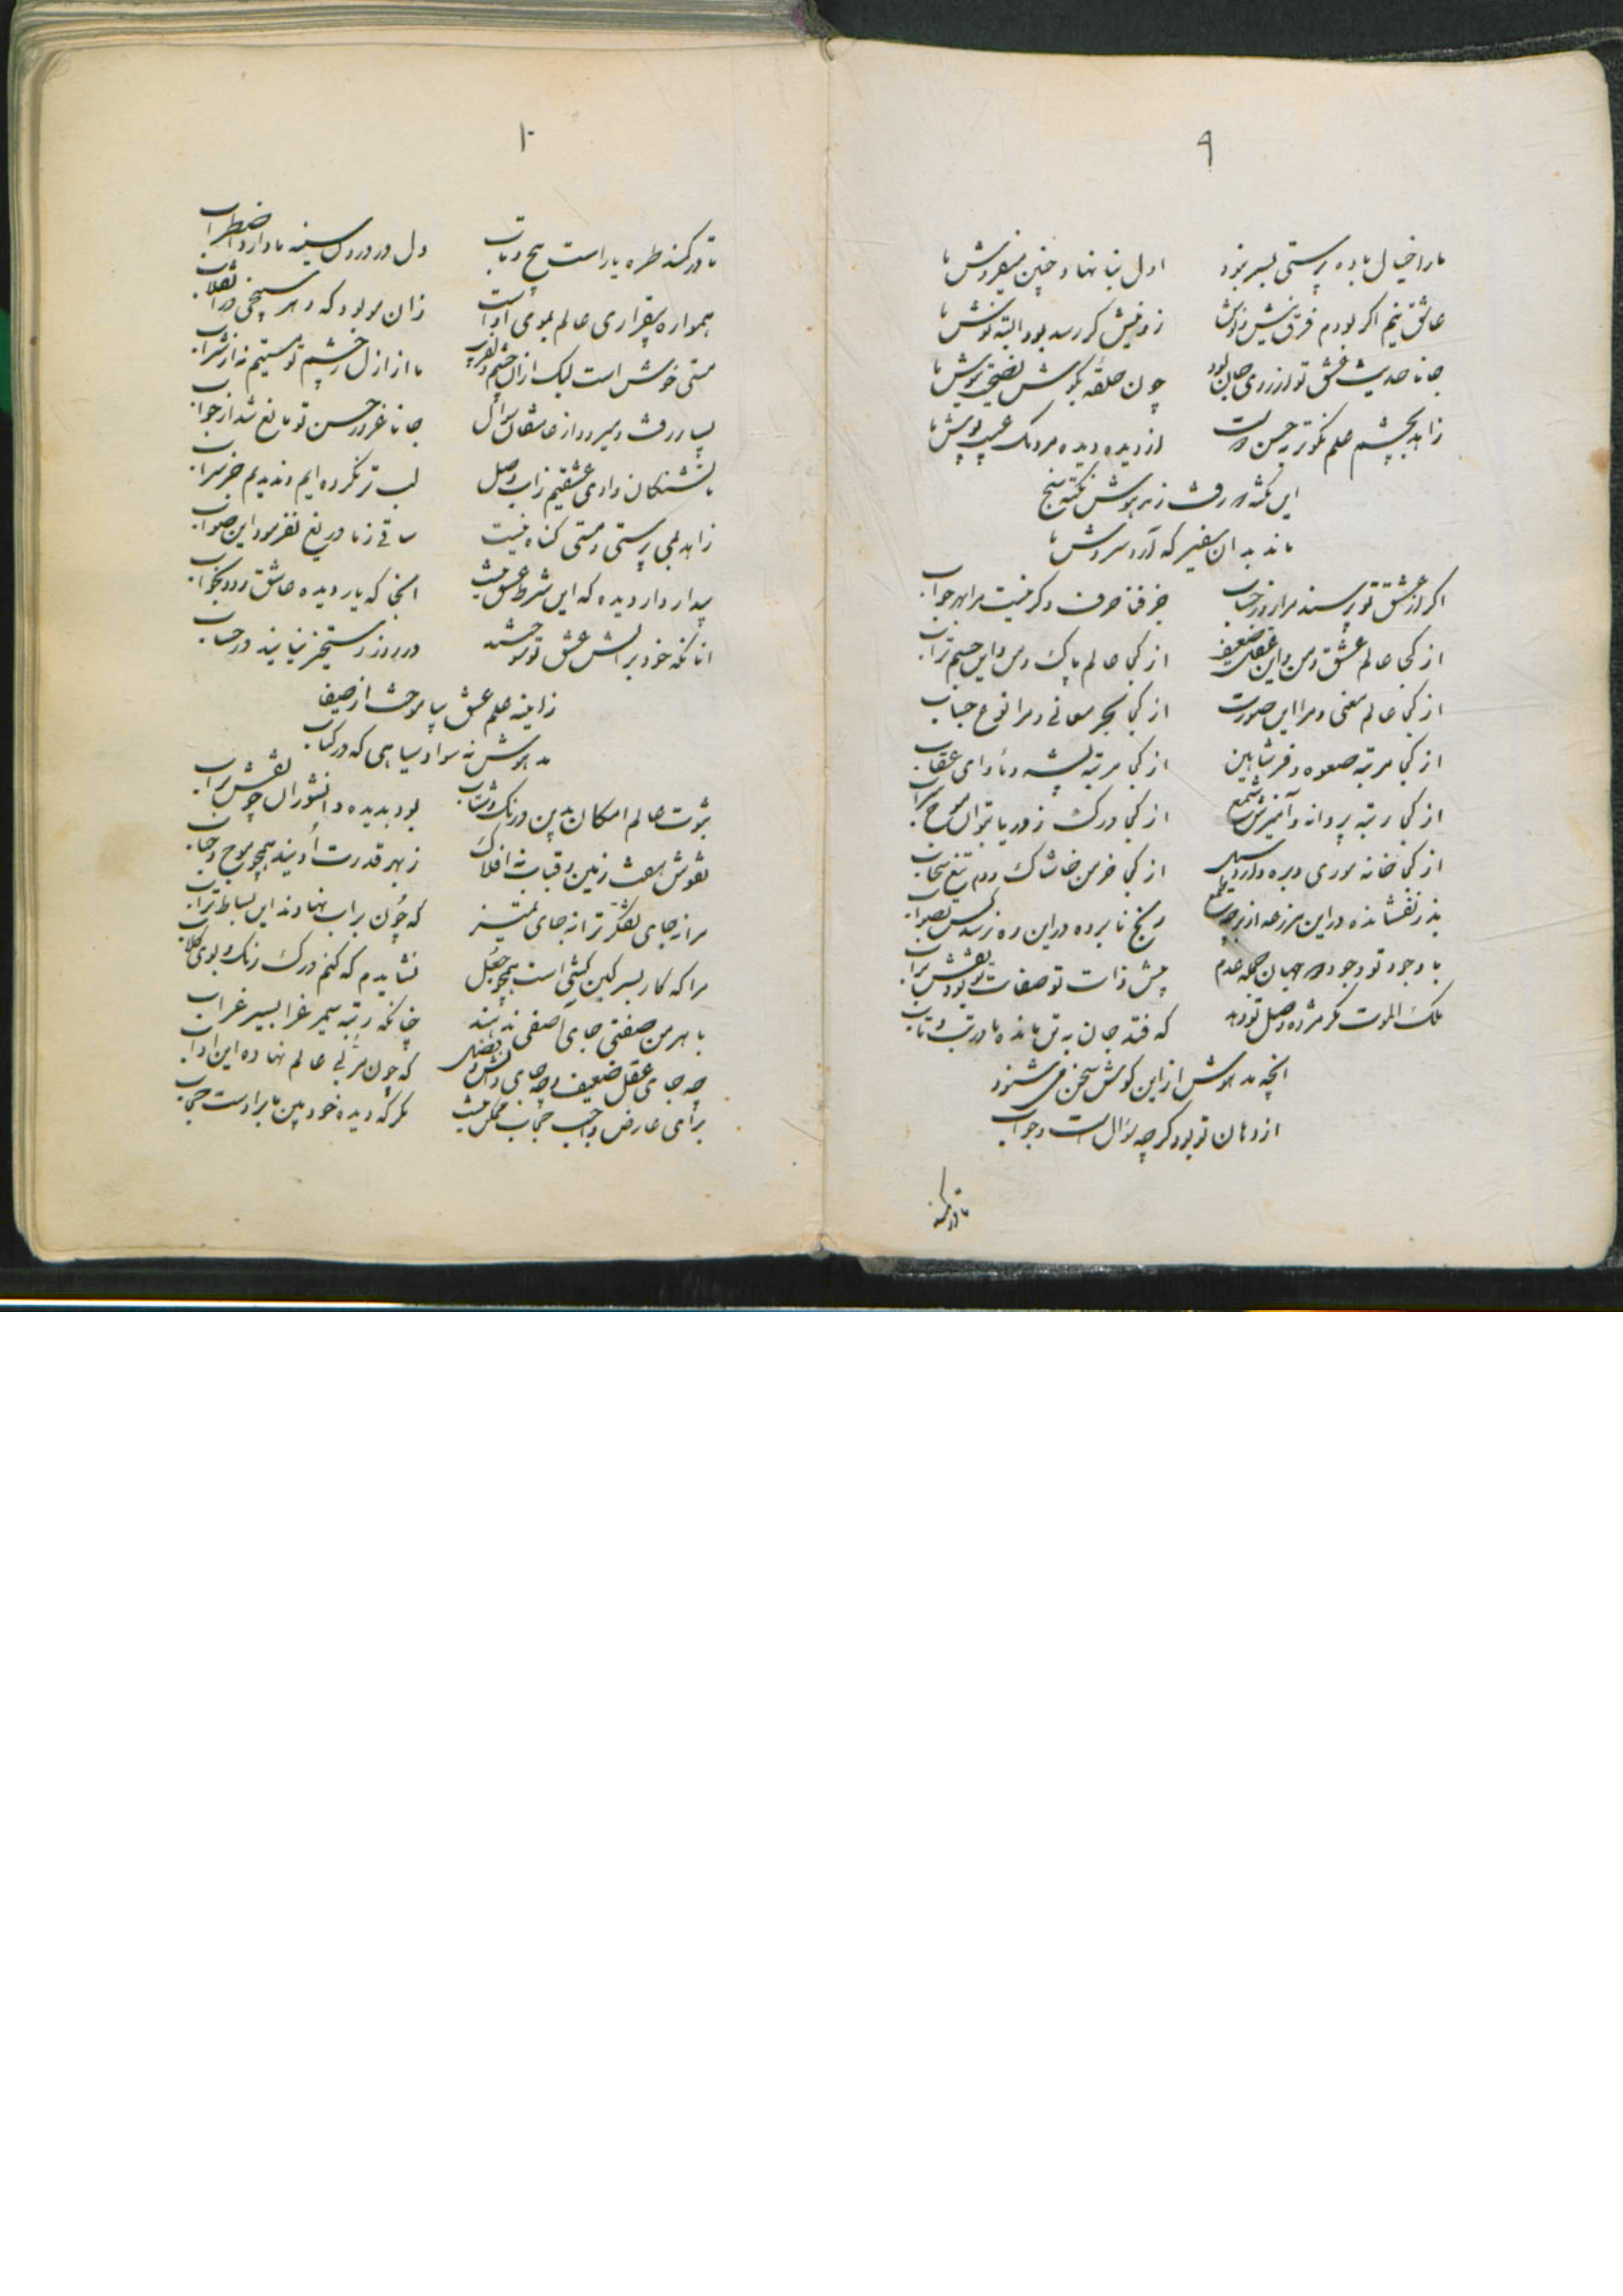 ۹
ما را خیال باده پرستی بسر نبود
اول بنا نهاد چنین میفروش ما
عاشق نیم اگر بودم فرق نیش و نوش
زو نیش گر رسد بود البته نوش ما
جانا حدیث عشق تو از روی جان بود
چون حلقه بگوش نصیحت نیوش ما
زاهد بچشم علم نکو تر به حسن
از دیده دیده مردمک عیب پوش ما
این نکته رفت ز مدهوش نکته سنج
ماند بدان سفیر که آرد سروش ما
اگر از عشق تو پرسند مرا روز حساب
جز فنا حرف دگر نیست مرا بهر جواب
از کجا عالم عشق و من و این عقل ضعیف
از کجا عالم پاک و من و این جسم تراب
از کجا عالم معنی و مرا این صورت
از کجا بحر معانی و مرا نوع حباب
از کجا مرتبه صعوه و فر شاهین
از کجا مرتبه پشه و مأوای عقاب
از کجا رتبه پروانه و آمیزش شمع
از کجا درک ز دریا بتوان موج سراب
از کجا خانه موری و سیل
از کجا خرمن خاشاک و دم تیغ سحاب
بذر نفشانده در این مزرعه از بهر چه طمع
رنج نابرده در این ره نرسد کس بصواب
با وجود تو وجود جهان جمله عدم
پیش ذات تو صفات تو بود نقش بر آب
ملک الموت مگر مژده وصل تو دهد
که فتد جان به تن مانده ما در تب و تاب
آنچه مدهوش از این گوش سخن می شنود
از دهان تو بود گرچه سؤال است و جواب
تا در کمند
۱۰
تا در کمند طره یار است پیچ و تاب
دل در درون سینه ما دارد اضطراب
همواره بیقراری عالم بموی اوست
زان مو بود که دهر سپنجی در انقلاب
مستی خوش است لیک از آن چشم دلفریب
ما از ازل ز چشم تو مستیم نه از شراب
بسیار رفت و میرود از عاشقان سؤال
جانا غرور حسن تو مانع شد از جواب
ما تشنگان وادی عشقیم ز آب وصل
لب تر نکرده ایم و ندیدیم جز سراب
زاهد بمی پرستی و مستی گناه نیست
ساقی ز ما دریغ نفرمود این صواب
بیدار دار دیده که این شرط عشق نیست
آنجا که یار دیده عاشق رود بخواب
آنانکه خود بر آتش عشق تو سوختند
در روز رستخیز نیایند در حساب
ز آیینه علم عشق بیاموخت از صفا
مدهوش نه سواد سیاهی که در کتاب
ثبوت عالم امکان بدین درنگ و شتاب
بود بدیده دانشوران چو نقش بر آب
نقوش هفت زمین و قباب نه افلاک
ز بهر قدرت اویند همچو موج و حباب
مرا نه جای تفکر ترا نه جای تمیز
که چون بر آب نهادند این بساط تراب
مرا که کار بسرگین کشی است همچو جعل
نشایدم که کنم درک رنگ و بوی گلاب
با هرمن صفتی جای آصفی ندهند
چنانکه رتبه سیمرغ را بسیر غراب
چه جای عقل ضعیف و چه جای دانش و فضل
که چون مربی عالم نهاده این آداب
برای عارض واجب حجاب ممکن نیست
مگر که دیده خود بین ما بر اوست حجاب